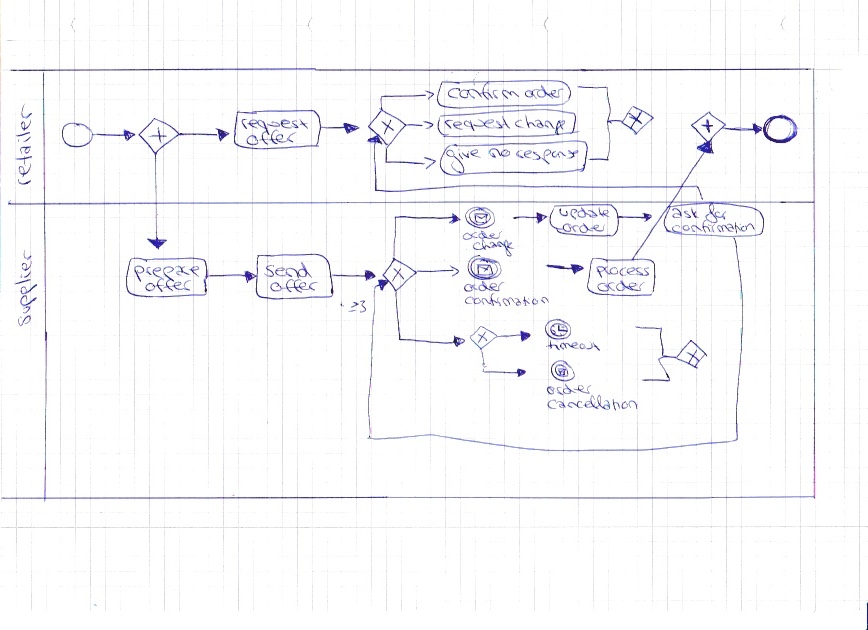 retailer
request
offer
confirm order
request change
give no response
supplier
prepare
offer
send
offer
≥3
order
change
update
order
ask for
confirmation
order
confirmation
process
order
timeout
order
cancellation